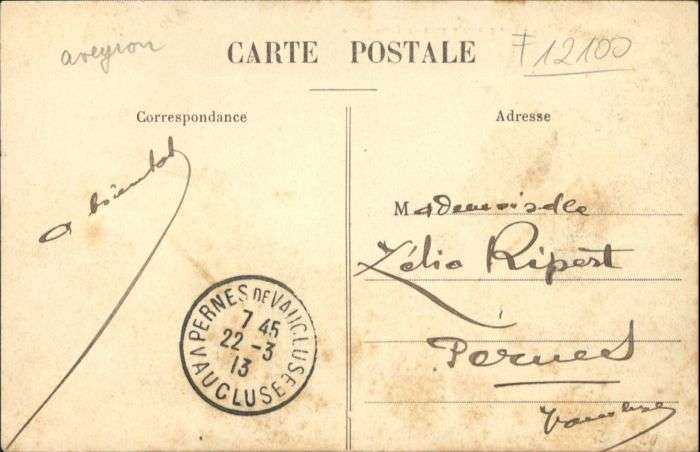 aveyron
CARTE POSTALE
F 12100
Correspondance
Adresse
a bientot
Mademoiselle
Zélia Ripert
Pernes
Vaucluse
PERNES DE VAUCLUSE
7 45
22 -3
13
VAUCLUSE